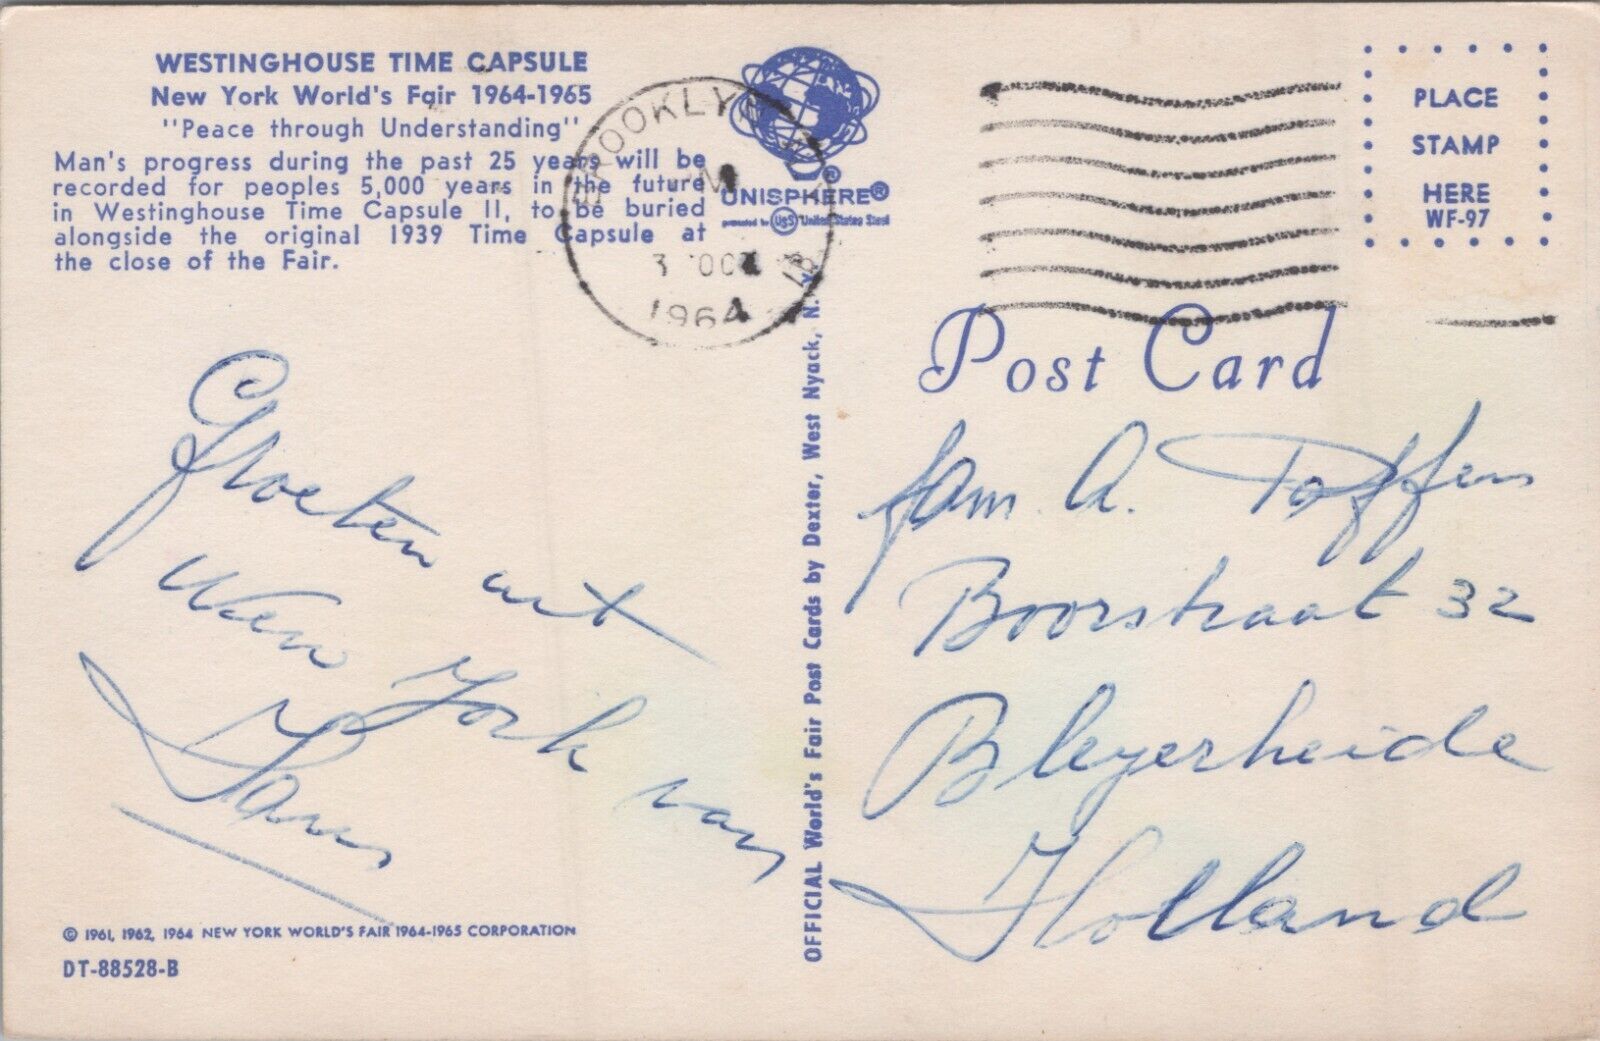 WESTINGHOUSE TIME CAPSULE
New York World's Fair 1964-1965
"Peace through Understanding"
Man's progress during the past 25 years will be
recorded for peoples 5,000 years in the future
in Westinghouse Time Capsule II, to be buried
alongside the original 1939 Time Capsule at
the close of the Fair.
UNISPHERE®
presented by USS United States Steel
BROOKLYN
PM
3 OCT
1964
PLACE
STAMP
HERE
WF-97
Post Card
Groeten uit
New York van
Hans
Fam. A. Toffen
Boorstraat 32
Bleyerheide
Holland
OFFICIAL World's Fair Post Cards by Dexter, West Nyack, N. Y.
© 1961, 1962, 1964 NEW YORK WORLD'S FAIR 1964-1965 CORPORATION
DT-88528-B